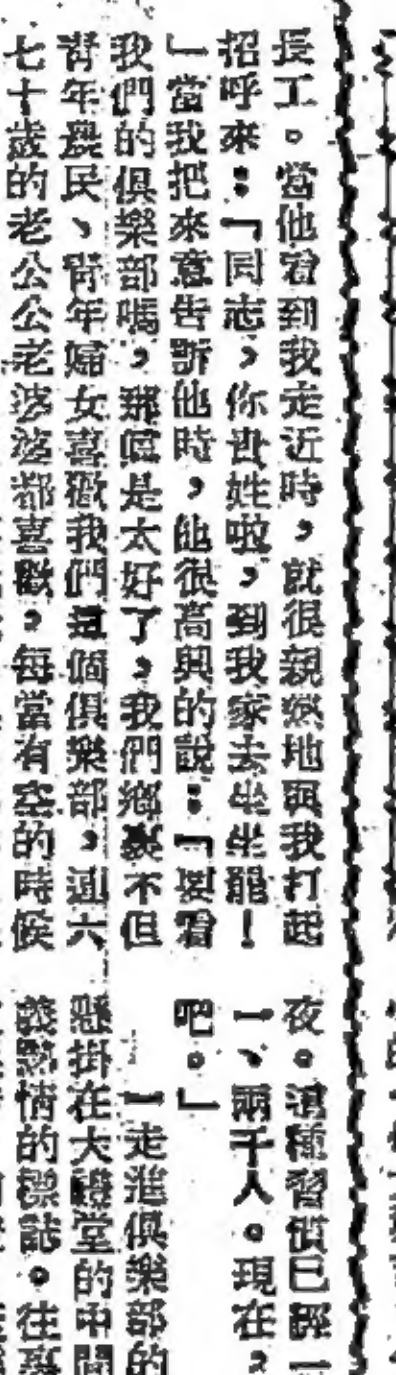 長工。當他看到我走近時，就很親熱地與我打起
招呼來：「同志，你貴姓啦，到我家去坐坐罷！
」當我把來意告訴他時，他很高興的說：「要看
我們的俱樂部嗎，那眞是太好了，我們鄉裏不但
靑年農民、靑年婦女喜歡我們這個俱樂部，連六
七十歲的老公公老婆婆都喜歡，每當有空的時候
夜。這種習慣已經一
一、兩千人。現在，
吧。」
一走進俱樂部的
懸掛在大禮堂的中間
義熱情的標誌。往